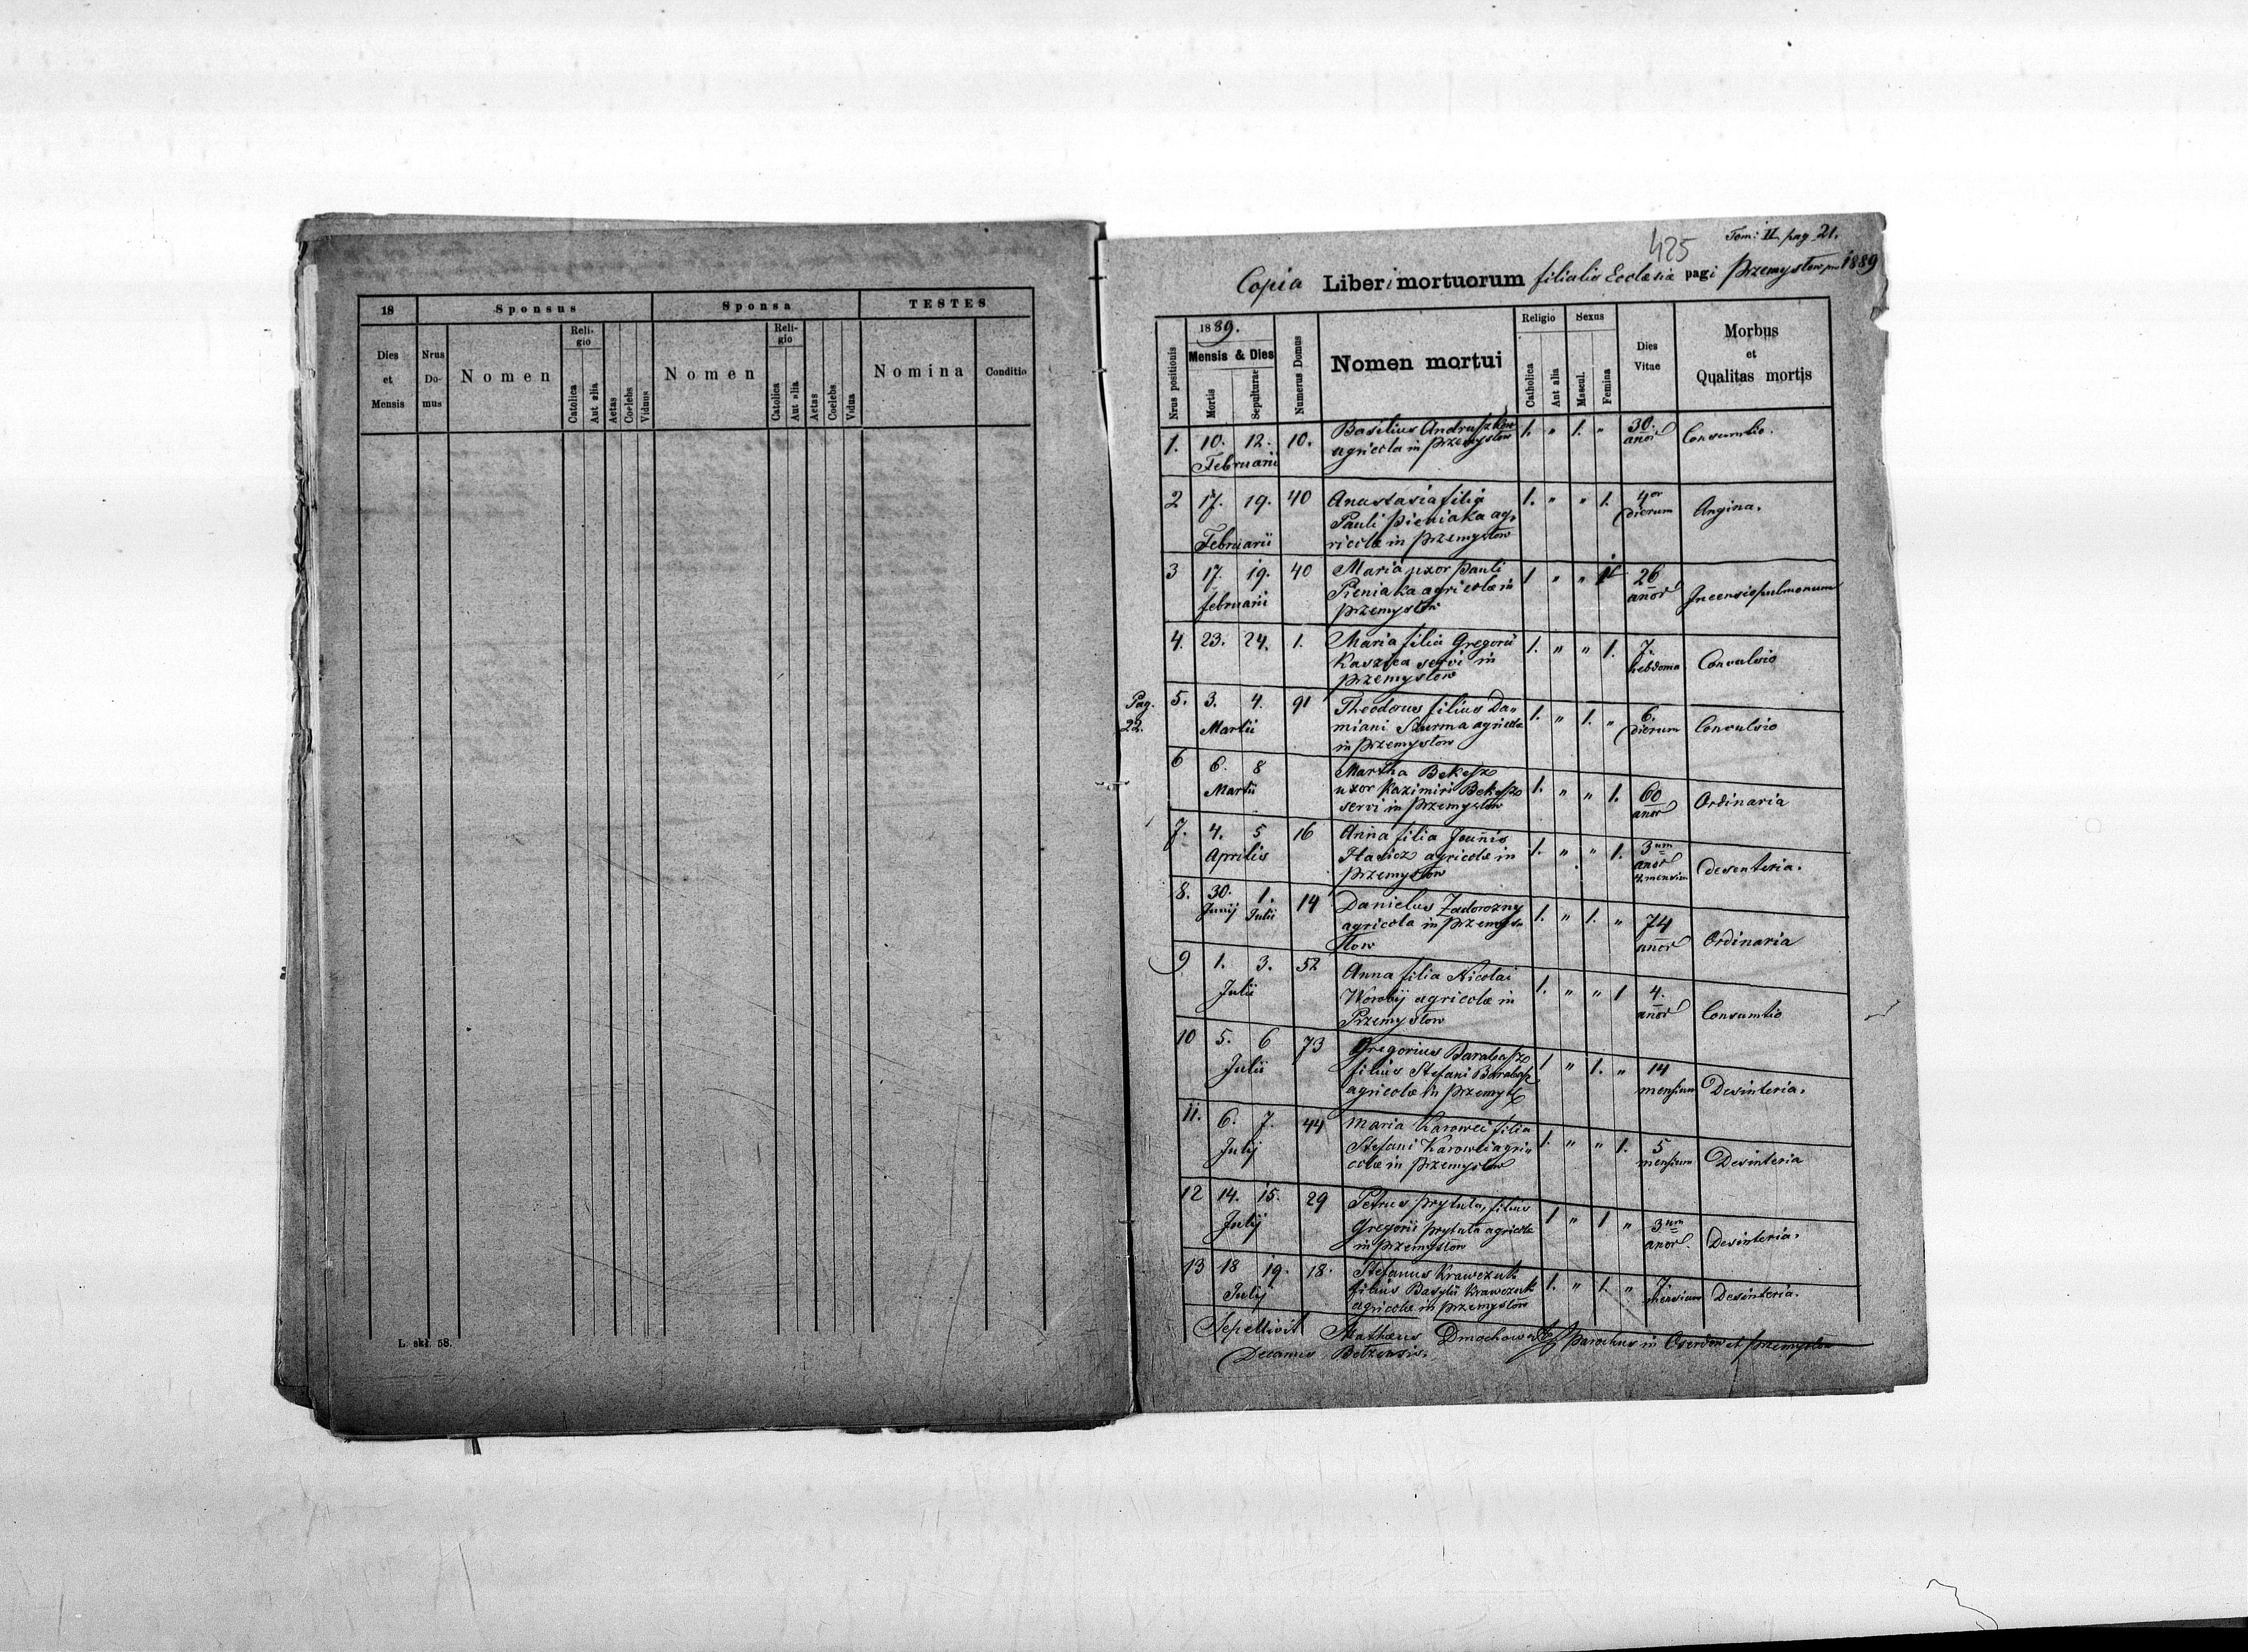 18 Sponsus Sponsa TESTES
Dies et Mensis Nrus Domus Nomen Religio Catolica Aut alia Aetas Coelebs Viduus Nomen Religio Catolica Aut alia Aetas Coelebs Vidua Nomina Conditio
L. skł. 58.
425 Tom: II pag 21.
Copia Liberi mortuorum filialis Ecclesiæ pagi Przemysłow pro 1889
Nrus positionis 1889. Mensis & Dies Mortis Sepulturae Numerus Domus Nomen mortui Religio Catholica Aut alia Sexus Mascul. Femina Dies Vitae Morbus et Qualitas mortis
1. 10. 12. 10. Basilius Andruszkow 1. " 1. " 30. Consumtio.
Februarii agricola in Przemysłow anor
2 17. 19. 40 Anastasia filia 1. " " 1. 4or Angina.
Pauli Pieniaka ag, dierum
Februarii ricolæ in Przemysłow
3 17. 19. 40 Maria uxor Pauli 1 " " 1 26 Incensio pulmonum
februarii Pieniaka agricolæ in anor
Przemysłow
4. 23. 24. 1. Maria filia Gregorii 1. " " 1. 7. Convulsio
servi in hebdoma
Przemysłow
Pag. 22.
5. 3. 4. 91 Theodorus filius Da, 1. " 1. " 6. Convulsio
Martii miani Szurma agricolæ dierum
in Przemysłow
6 6. 8 Martha Bekesz 1. " " 1. 60 Ordinaria
Martii uxor Kazimiri Bekesz anor
servi in Przemysłow
7. 4. 5 16 Anna filia Joannis 1. " " 1. 3um desenteria.
Aprilis agricolæ in anor
Przemysłow 4. mensium
8. 30. 1. 14 Danielus Zadorozny 1. " 1. " 74 Ordinaria
Junij Julii agricola in Przemys, anor
łow
9 1. 3. 52 Anna filia Nicolai 1. " " 1 4. Consumtio
Julii Worobij agricolæ in anor
Przemysłow
10 5. 6 73 Gregorius Barabasz 1 " 1. " 14 Desinteria.
Julii filius Stefani Barabasz mensium
agricolæ in Przemysł
11. 6. 7. 44 Maria Karowci filia 1. " " 1. 5 Desinteria
Julij Stefani Karowci agri, mensium
colæ in Przemysłow
12 14. 15. 29 Petrus Prytuła, filius 1 " 1 " 3um Desinteria.
Julij Gregorii Prytuła agricolæ anor.
in Przemysłow
13 18 19. 18. Stefanus Krawczuk 1. " 1. " 7. Desinteria.
Julij filius Basylii Krawczuk mensium
agricolæ in Przemysłow
Sepellivit Mathæus parochus in Oserdow et Przemysłow
Decanus Bełzensis.